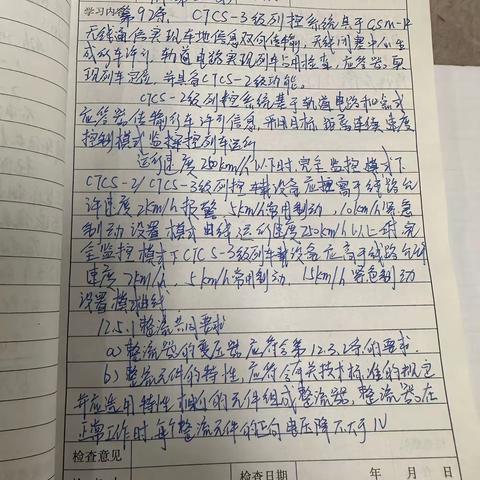 学习内容
第92条. CTCS-3级列控系统基于GSM-R
无线通信实现车地信息双向传输,无线闭塞中心生
成行车许可,轨道电路实现列车占用检查,应答器实
现列车定位,并具备CTCS-2级功能。
CTCS-2级列控系统基于轨道电路和点式
应答器传输行车许可信息,并采用目标距离连续速度
控制模式监控列车运行
运行速度250km/h以下时,完全监控模式下
CTCS-2/CTCS-3级列控车载设备应按高于线路允
许速度2km/h报警、5km/h常用制动、10km/h紧急
制动设置模式曲线,运行速度250km/h以上时,完
全监控模式下CTCS-3级列车载设备应高于线路允许
速度2km/h、5km/h常用制动、15km/h紧急制动
设置模式曲线
12.5.1整流共同要求
a)整流器的变压器应符合第12.3.2条的要求.
b)整流元件的特性,应符合有关技术标准的规定
并应选用特性相近的元件组成整流器,整流器在
正常工作时,每个整流元件的正向电压降不大于1V
检查意见
检查日期 年 月 日